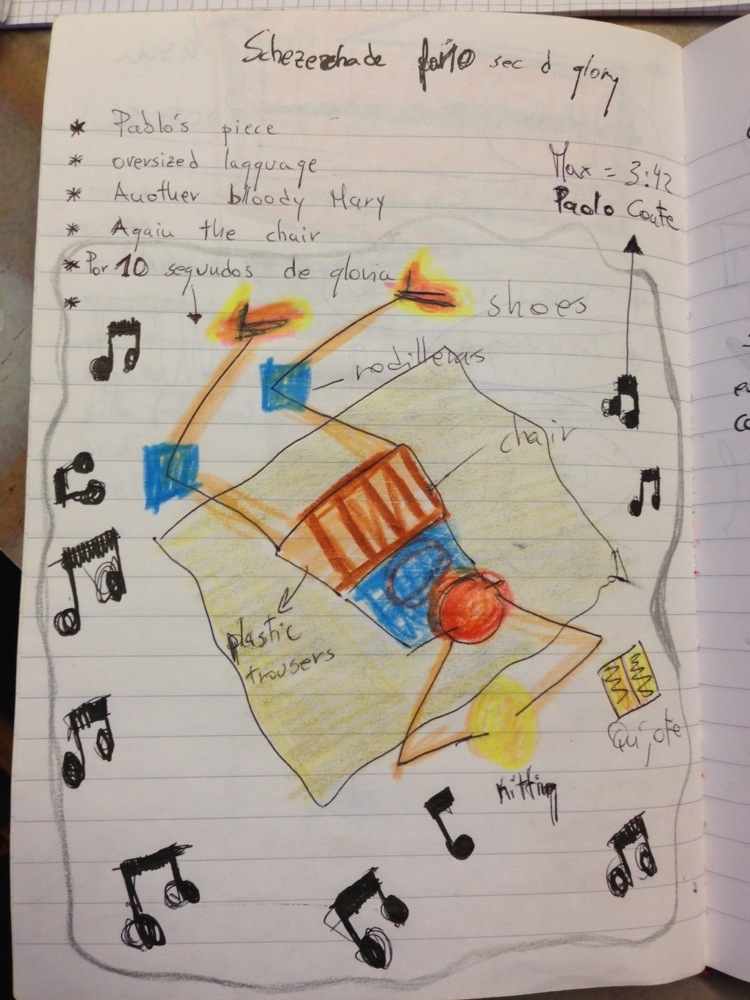 Schezerchade for 10 sec d glory
* Pablo's piece
* oversized lagguage
* Another bloody Mary
* Again the chair
* Por 10 segundos de gloria
*
Max = 3:42
Paolo Conte
shoes
rodilleras
chair
plastic
trousers
Quijote
nitting